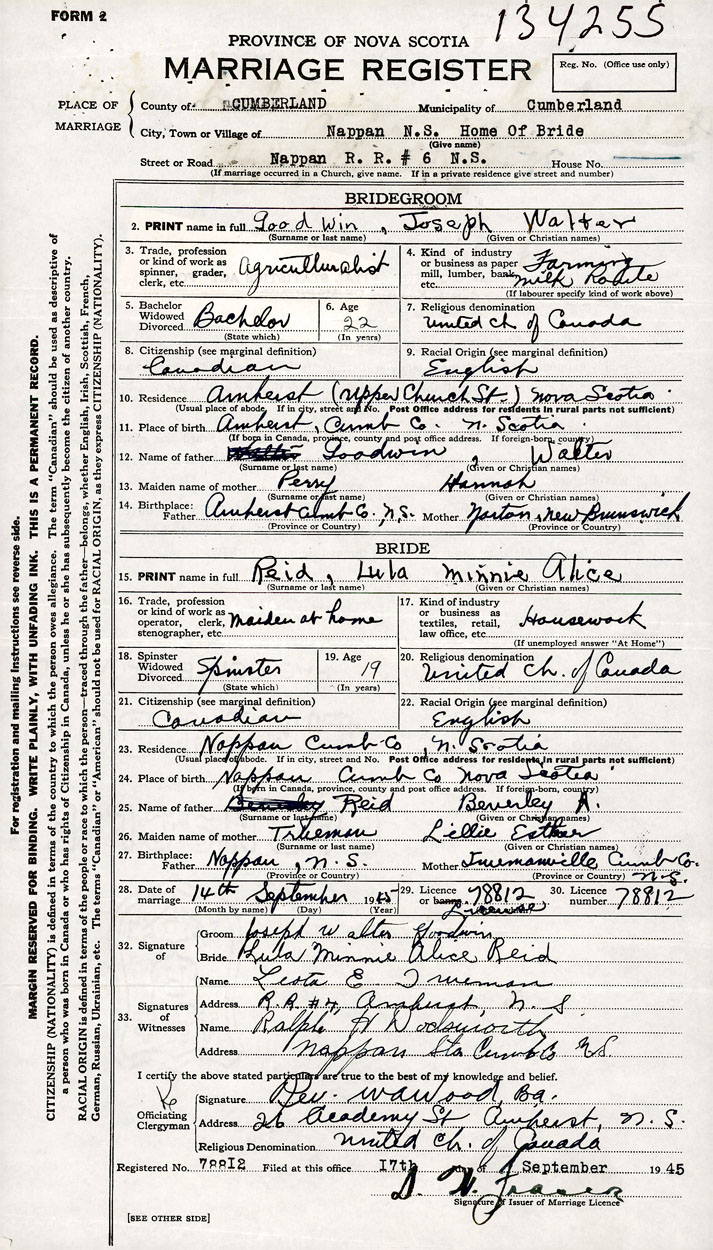 FORM 2
134255
PROVINCE OF NOVA SCOTIA
MARRIAGE REGISTER
Reg. No. (Office use only)
PLACE OF MARRIAGE
County of CUMBERLAND Municipality of Cumberland
City, Town or Village of Nappan N.S. Home Of Bride
(Give name)
Street or Road Nappan R. R. # 6 N.S. House No.
(If marriage occurred in a Church, give name. If in a private residence give street and number)
BRIDEGROOM
2. PRINT name in full Goodwin, Joseph Walter
(Surname or last name) (Given or Christian names)
3. Trade, profession or kind of work as spinner, grader, clerk, etc. Agriculturalist
4. Kind of industry or business as paper mill, lumber, bank, etc. Farming milk Route
(If labourer specify kind of work above)
5. Bachelor Widowed Divorced Bachelor
(State which)
6. Age 22
(In years)
7. Religious denomination United Ch. of Canada
8. Citizenship (see marginal definition) Canadian
9. Racial Origin (see marginal definition) English
10. Residence Amherst (upper Church St.) Nova Scotia
(Usual place of abode. If in city, street and No. Post Office address for residents in rural parts not sufficient)
11. Place of birth Amherst, Cumb Co. N. Scotia
(If born in Canada, province, county and post office address. If foreign-born, country)
12. Name of father Walter Goodwin, Walter
(Surname or last name) (Given or Christian names)
13. Maiden name of mother Perry Hannah
(Surname or last name) (Given or Christian names)
14. Birthplace: Father Amherst Cumb Co. N.S. Mother Norton, New Brunswick
(Province or Country) (Province or Country)
BRIDE
15. PRINT name in full Reid, Lula Minnie Alice
(Surname or last name) (Given or Christian names)
16. Trade, profession or kind of work as operator, clerk, stenographer, etc. Maiden at home
17. Kind of industry or business as textiles, retail, law office, etc. Housework
(If unemployed answer "At Home")
18. Spinster Widowed Divorced Spinster
(State which)
19. Age 19
(In years)
20. Religious denomination United Ch. of Canada
21. Citizenship (see marginal definition) Canadian
22. Racial Origin (see marginal definition) English
23. Residence Nappan Cumb Co, N. Scotia
(Usual place of abode. If in city, street and No. Post Office address for residents in rural parts not sufficient)
24. Place of birth Nappan Cumb Co Nova Scotia
(If born in Canada, province, county and post office address. If foreign-born, country)
25. Name of father Beverley Reid Beverley A.
(Surname or last name) (Given or Christian names)
26. Maiden name of mother Trueman Lillie Esther
(Surname or last name) (Given or Christian names)
27. Birthplace: Father Nappan, N.S. Mother Truemanville Cumb Co. N.S.
(Province or Country) (Province or Country)
28. Date of marriage 14th September 1945
(Month by name) (Day) (Year)
29. Licence or banns 78812 License
30. Licence number 78812
32. Signature of
Groom Joseph Walter Goodwin
Bride Lula Minnie Alice Reid
33. Signatures of Witnesses
Name Leota E Trueman
Address R.R. #4, Amherst, N.S.
Name Ralph H Dodsworth
Address Nappan Sta Cumb Co N.S.
I certify the above stated particulars are true to the best of my knowledge and belief.
Officiating Clergyman
Signature Rev. W A Wood, B.A.
Address 26 Academy St Amherst, N.S.
Religious Denomination United Ch. of Canada
Registered No. 78812 Filed at this office 17th day of September 1945
Signature of Issuer of Marriage Licence
[SEE OTHER SIDE]
For registration and mailing instructions see reverse side.
MARGIN RESERVED FOR BINDING. WRITE PLAINLY, WITH UNFADING INK. THIS IS A PERMANENT RECORD.
CITIZENSHIP (NATIONALITY) is defined in terms of the country to which the person owes allegiance. The term "Canadian" should be used as descriptive of
a person who was born in Canada or who has rights of Citizenship in Canada, unless he or she has subsequently become the citizen of another country.
RACIAL ORIGIN is defined in terms of the people or race to which the person—traced through the father—belongs, whether English, Irish, Scottish, French,
German, Russian, Ukrainian, etc. The terms "Canadian" or "American" should not be used for RACIAL ORIGIN, as they express CITIZENSHIP (NATIONALITY).